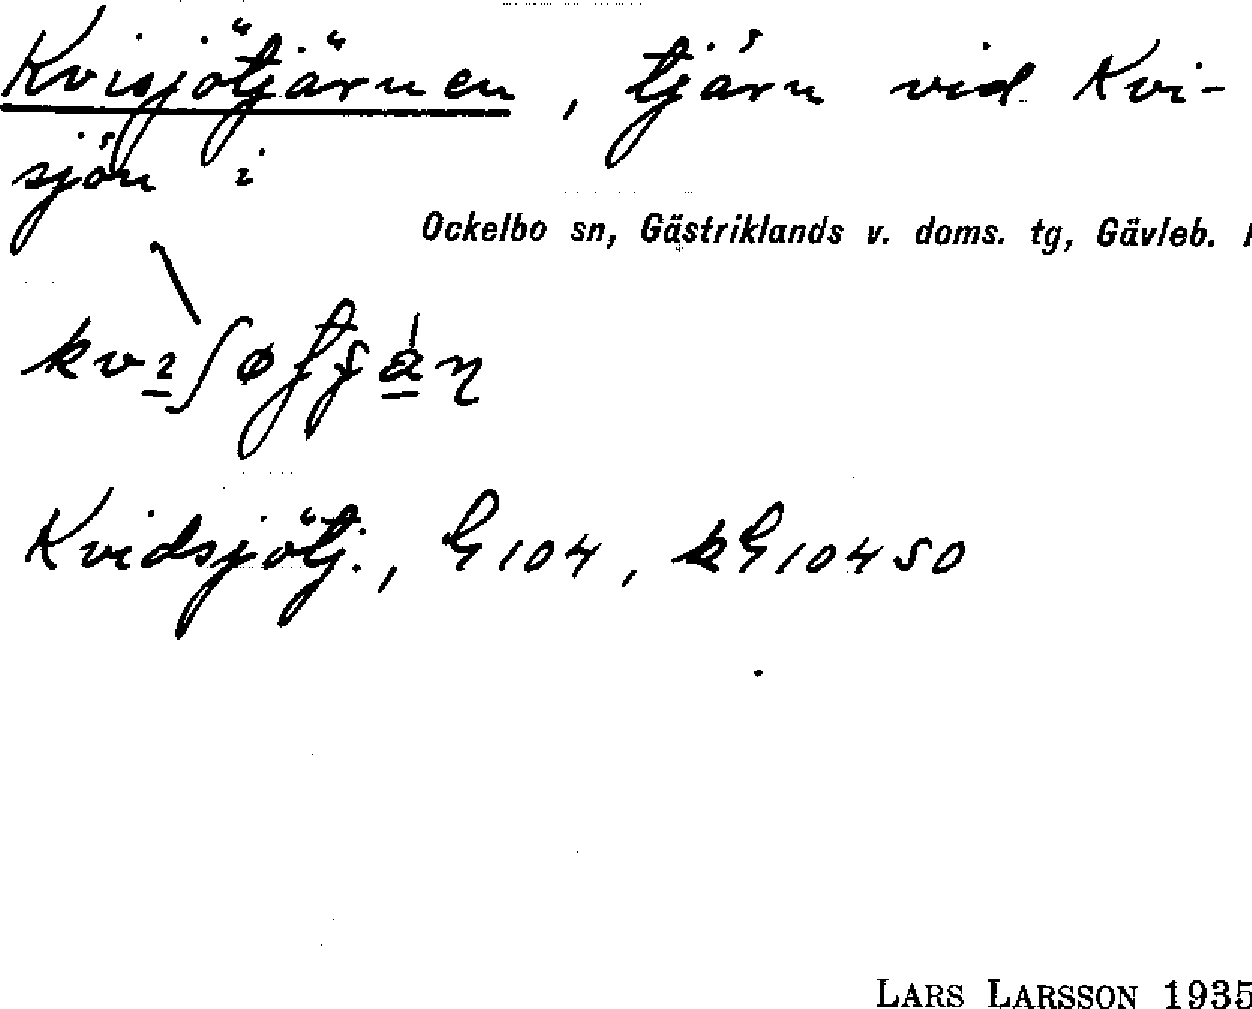 Kvisjötjärnen, tjärn vid Kvi-
sjön i
Ockelbo sn, Gästriklands v. doms. tg, Gävleb. l
Kvidsjötj., G104, kG10450
LARS LARSSON 1935